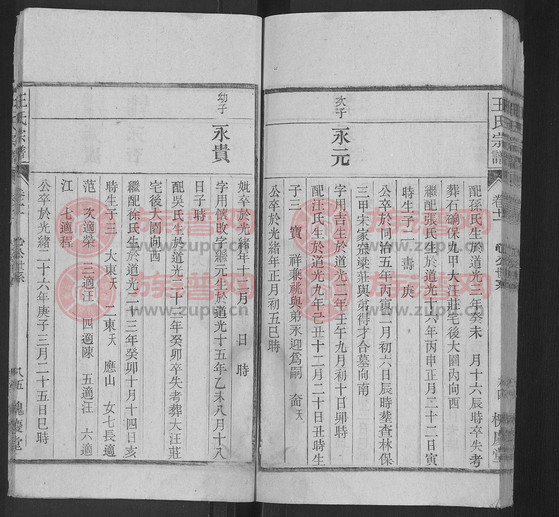 王氏宗譜
卷十
配孫氏生於道光三年癸未 月十六辰時卒失考
葬石碯保九甲大汪莊宅後大園内向西
繼配張氏生於道光十六年丙申正月二十二日寅
時生子二 壽 庚
公卒於同治五年丙寅二月初六日寅時葬查林保
三甲宋家窊梁灶與弟得才合墓向南
次子 永元
字用吉生於道光二年壬午九月初十日卯時
配汪氏生於道光九年己丑十二月二十日丑時生
子三 寶 祥兼祧與弟永迎為嗣 奮夭
公卒於光緒 年正月初五巳時
妣卒於光緒 年十二月 日 時
幼子 永貴
字用 改字繼元生於道光十五年乙未八月十八
日子時
配吳氏生於道光二十三年癸卯卒失考葬大汪莊
宅後大園向西
繼配徐氏生於道光二十三年癸卯十月十四日亥
時生子三 大東夭 二東夭 應山 女七長適
范 次適榮 三適汪 四適陳 五適汪 六適
江 七適程
公卒於光緒二十六年庚子三月二十五日巳時
王氏宗譜
八五
槐慶堂
族譜網
www.zupu.cn